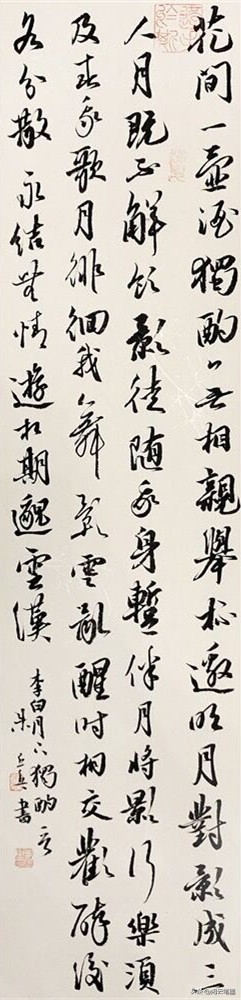 花間一壺酒獨酌无相親舉杯邀明月對影成三
人月既不解飲影徒隨我身暫伴月將影行樂須
及春我歌月徘徊我舞影零亂醒時相交歡醉後
各分散永結無情遊相期邈雲漢
李白月下獨酌
書